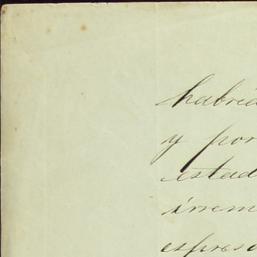 habria
y por
estad
irrem
espreso